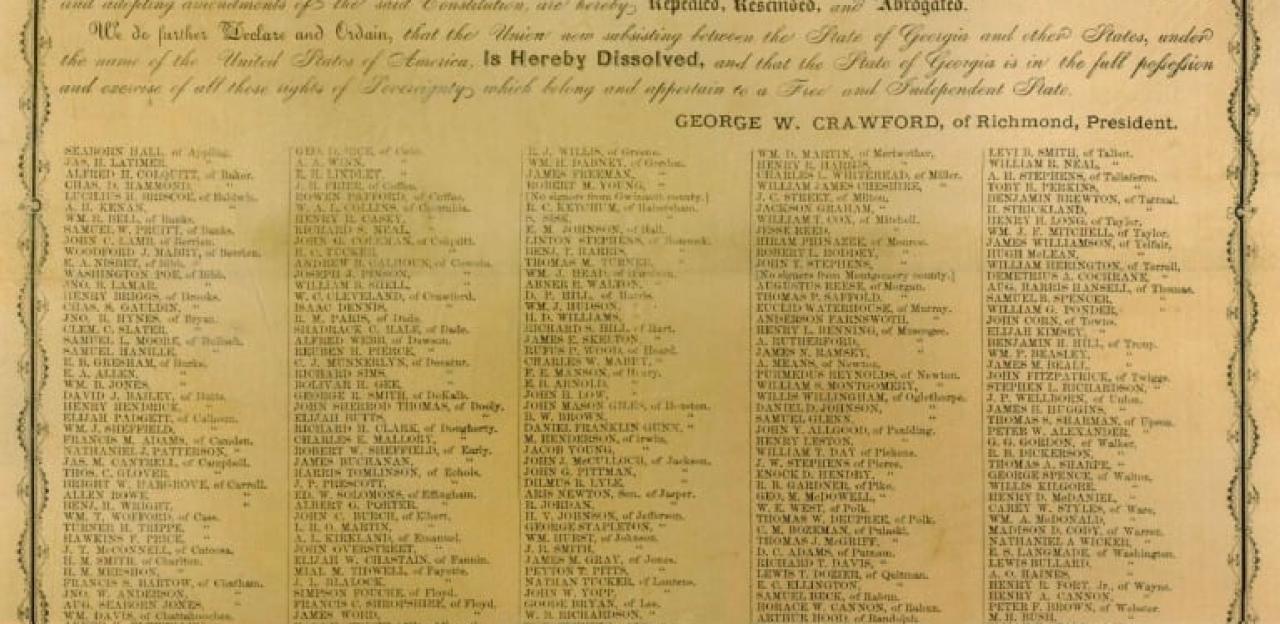 and adopting amendments of the said Constitution, are hereby Repealed, Rescinded, and Abrogated.
We do further Declare and Ordain, that the Union now subsisting between the State of Georgia and other States, under
the name of the United States of America, Is Hereby Dissolved, and that the State of Georgia is in the full possession
and exercise of all those rights of Sovereignty which belong and appertain to a Free and Independent State.
GEORGE W. CRAWFORD, of Richmond, President.
SEABORN HALL, of Appling.
JAS. H. LATIMER, "
ALFRED H. COLQUITT, of Baker.
CHAS. D. HAMMOND, "
LUCILIUS H. BRISCOE, of Baldwin.
A. H. KENAN, "
WM. R. BELL, of Banks.
SAMUEL W. PRUITT, of Banks.
JOHN C. LAMB, of Berrien.
WOODFORD J. MABRY, of Berrien.
E. A. NISBET, of Bibb.
WASHINGTON POE, of Bibb.
JNO. B. LAMAR, "
HENRY BRIGGS, of Brooks.
CHAS. S. GAULDIN, "
JNO. R. HYNES, of Bryan.
CLEM. C. SLATER, "
SAMUEL L. MOORE, of Bulloch.
SAMUEL HANILLE, "
E. B. GRESHAM, of Burke.
E. A. ALLEN, "
WM. B. JONES, "
DAVID J. BAILEY, of Butts.
HENRY HENDRICK, "
ELIJAH PADGETT, of Calhoun.
WM. J. SHEFFIELD, "
FRANCIS M. ADAMS, of Camden.
NATHANIEL J. PATTERSON, "
JAS. M. CANTRELL, of Campbell.
THOS. C. GLOVER, "
BRIGHT W. HARGROVE, of Carroll.
ALLEN ROWE, "
BENJ. H. WRIGHT, "
WM. T. WOFFORD, of Cass.
TURNER H. TRIPPE, "
HAWKINS F. PRICE, "
J. T. McCONNELL, of Catoosa.
H. M. SMITH, of Charlton.
H. M. MERSHON, "
FRANCIS S. BARTOW, of Chatham.
JNO. W. ANDERSON, "
AUG. SEABORN JONES, "
WM. DAVIS, of Chattahoochee.
GEO. D. RICE, of Cobb.
A. A. WINN, "
E. H. LINDLEY, "
J. H. FRIER, of Coffee.
ROWEN PAFFORD, of Coffee.
W. A. L. COLLINS, of Columbia.
HENRY R. CASEY, "
RICHARD S. NEAL, "
JOHN G. COLEMAN, of Colquitt.
H. V. TUCKER, "
ANDREW B. CALHOUN, of Coweta.
JOSEPH J. PINSON, "
WILLIAM B. SHELL, "
W. C. CLEVELAND, of Crawford.
ISAAC DENNIS, "
R. M. PARIS, of Dade.
SHADRACK C. HALE, of Dade.
ALFRED WEBB, of Dawson.
REUBEN H. PIERCE, "
C. J. MUNNERLYN, of Decatur.
RICHARD SIMS, "
BOLIVAR H. GEE, "
GEORGE R. SMITH, of DeKalb.
JOHN SHEROD THOMAS, of Dooly.
ELIJAH BUTTS, "
RICHARD H. CLARK, of Dougherty.
CHARLES E. MALLORY, "
ROBERT W. SHEFFIELD, of Early.
JAMES BUCHANAN, "
HARRIS TOMLINSON, of Echols.
J. P. PRESCOTT, "
ED. W. SOLOMONS, of Effingham.
ALBERT G. PORTER, "
JOHN C. BURCH, of Elbert.
L. H. O. MARTIN, "
A. L. KIRKLAND, of Emanuel.
JOHN OVERSTREET, "
ELIJAH W. CHASTAIN, of Fannin.
MIAL M. THOWELL, of Fayette.
J. L. BLALOCK, "
SIMPSON FOUCHE, of Floyd.
FRANCIS C. SHROPSHIRE, of Floyd.
JAMES WORD, "
R. J. WILLIS, of Greene.
WM. H. DABNEY, of Gordon.
JAMES FREEMAN, "
ROBERT M. YOUNG, "
[No signers from Gwinnett county.]
R. C. KETCHUM, of Habersham.
S. SISK, "
E. M. JOHNSON, of Hall.
LINTON STEPHENS, of Hancock.
BENJ. T. HARRIS, "
THOMAS M. TURNER, "
WM. J. HEAD, of Haralson.
ABNER R. WALTON, "
D. P. HILL, of Harris.
WM. J. HUDSON, "
H. D. WILLIAMS, "
RICHARD S. HILL, of Hart.
JAMES E. SKELTON, "
RUFUS P. WOOD, of Heard.
CHARLES W. MABRY, "
F. E. MANSON, of Henry.
E. B. ARNOLD, "
JOHN B. LOW, "
JOHN MASON GILES, of Houston.
B. W. BROWN, "
DANIEL FRANKLIN GUNN, "
M. HENDERSON, of Irwin.
JACOB YOUNG, "
JOHN J. McCULLOCH, of Jackson.
JOHN G. PITTMAN, "
DILMUS R. LYLE, "
ARIS NEWTON, Sen. of Jasper.
R. JORDAN, "
H. V. JOHNSON, of Jefferson.
GEORGE STAPLETON, "
WM. HURST, of Johnson.
J. R. SMITH, "
JAMES M. GRAY, of Jones.
PEYTON T. PITTS, "
NATHAN TUCKER, of Laurens.
JOHN W. YOPP, "
GOODE BRYAN, of Lee.
W. B. RICHARDSON, "
WM. D. MARTIN, of Meriwether.
HENRY R. HARRIS, "
CHARLES L. WHITEHEAD, of Miller.
WILLIAM JAMES CHESHIRE, "
J. C. STREET, of Milton.
JACKSON GRAHAM, "
WILLIAM T. COX, of Mitchell.
JESSE REED, "
HIRAM PHINAZEE, of Monroe.
ROBERT L. RODDEY, "
JOHN T. STEPHENS, "
[No signers from Montgomery county.]
AUGUSTUS REESE, of Morgan.
THOMAS P. SAFFOLD, "
EUCLID WATERHOUSE, of Murray.
ANDERSON FARNSWORTH, "
HENRY L. BENNING, of Muscogee.
A. RUTHERFORD, "
JAMES N. RAMSEY, "
A. MEANS, of Newton.
PURMEDUS REYNOLDS, of Newton.
WILLIAM S. MONTGOMERY, "
WILLIS WILLINGHAM, of Oglethorpe.
DANIEL D. JOHNSON, "
SAMUEL GLENN, "
JOHN Y. ALLGOOD, of Paulding.
HENRY LESTON, "
WILLIAM T. DAY of Pickens.
J. W. STEPHENS of Pierce.
ENOCK D. HENDRY, "
R. B. GARDNER, of Pike.
GEO. M. McDOWELL, "
W. E. WEST, of Polk.
THOMAS W. DUPREE, of Polk.
C. M. BOZEMAN, of Pulaski.
THOMAS J. McGRIFF, "
D. C. ADAMS, of Putnam.
RICHARD T. DAVIS, "
LEWIS T. DOZIER, of Quitman.
E. C. ELLINGTON, "
SAMUEL BECK, of Rabun.
HORACE W. CANNON, of Rabun.
ARTHUR HOOD, of Randolph.
LEVI B. SMITH, of Talbot.
WILLIAM R. NEAL, "
A. H. STEPHENS, of Taliaferro.
TOBY B. PERKINS, "
BENJAMIN BREWTON, of Tattnal.
H. STRICKLAND, "
HENRY H. LONG, of Taylor,
WM. J. F. MITCHELL, of Taylor.
JAMES WILLIAMSON, of Telfair,
HUGH McLEAN, "
WILLIAM HERINGTON, of Terrell,
DEMETRIUS A. COCHRANE, "
AUG. HARRIS HANSELL, of Thomas.
SAMUEL B. SPENCER, "
WILLIAM G. PONDER, "
JOHN CORN, of Towns.
ELIJAH KIMSEY, "
BENJAMIN H. HILL, of Troup.
WM. P. BEASLEY, "
JAMES M. BEALL, "
JOHN FITZPATRICK, of Twiggs.
STEPHEN L. RICHARDSON, "
J. P. WELLBORN, of Union.
JAMES H. HUGGINS, "
THOMAS S. SHARMAN, of Upson.
PETER W. ALEXANDER, "
G. G. GORDON, of Walker.
R. B. DICKERSON, "
THOMAS A. SHARPE, "
GEORGE SPENCE, of Walton.
WILLIS KILGORE, "
HENRY D. McDANIEL, "
CAREY W. STYLES, of Ware,
WM. A. McDONALD, "
MADISON D. CODY, of Warren.
NATHANIEL A WICKER, "
E. S. LANGMADE, of Washington.
LEWIS BULLARD, "
A. C. HAINES, "
HENRY R. FORT, Jr., of Wayne.
HENRY A. CANNON, "
PETER F. BROWN, of Webster.
M. H. BUSH, "